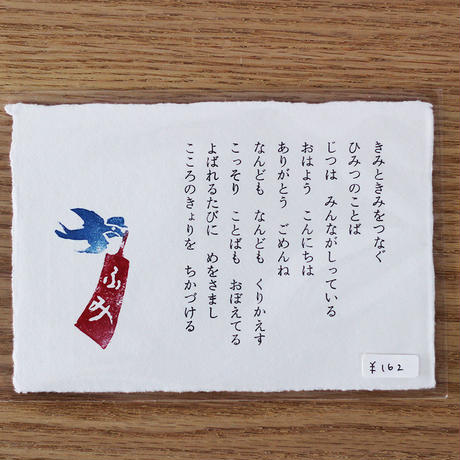 きみときみをつなぐ
ひみつのことば
じつは　みんながしっている
おはよう　こんにちは
ありがとう　ごめんね
なんども　なんども　くりかえす
こっそり　ことばも　おぼえてる
よばれるたびに　めをさまし
こころのきょりを　ちかづける
ふみ
¥162